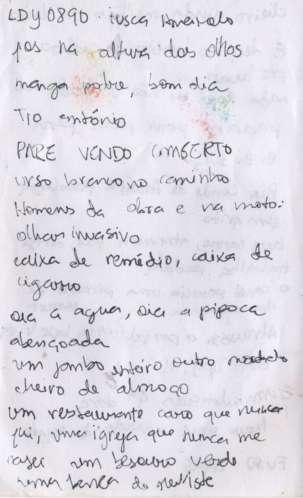 LDY 0890 fusca amarelo
pos na altura dos olhos
manga podre, bom dia
Tio antônio
PARE VENDO COMBERTO
urso branco no caminho
Homens da obra e na moto:
olhar invasivo
caixa de remédio, caixa de
cigarro
oia a agua, oia a pipoca
abençoada
um jambo inteiro outro
cheiro de almoço
um restaurante caro que nunca
fui, uma igreja que nunca me
casei um besouro verde
uma banca de revista